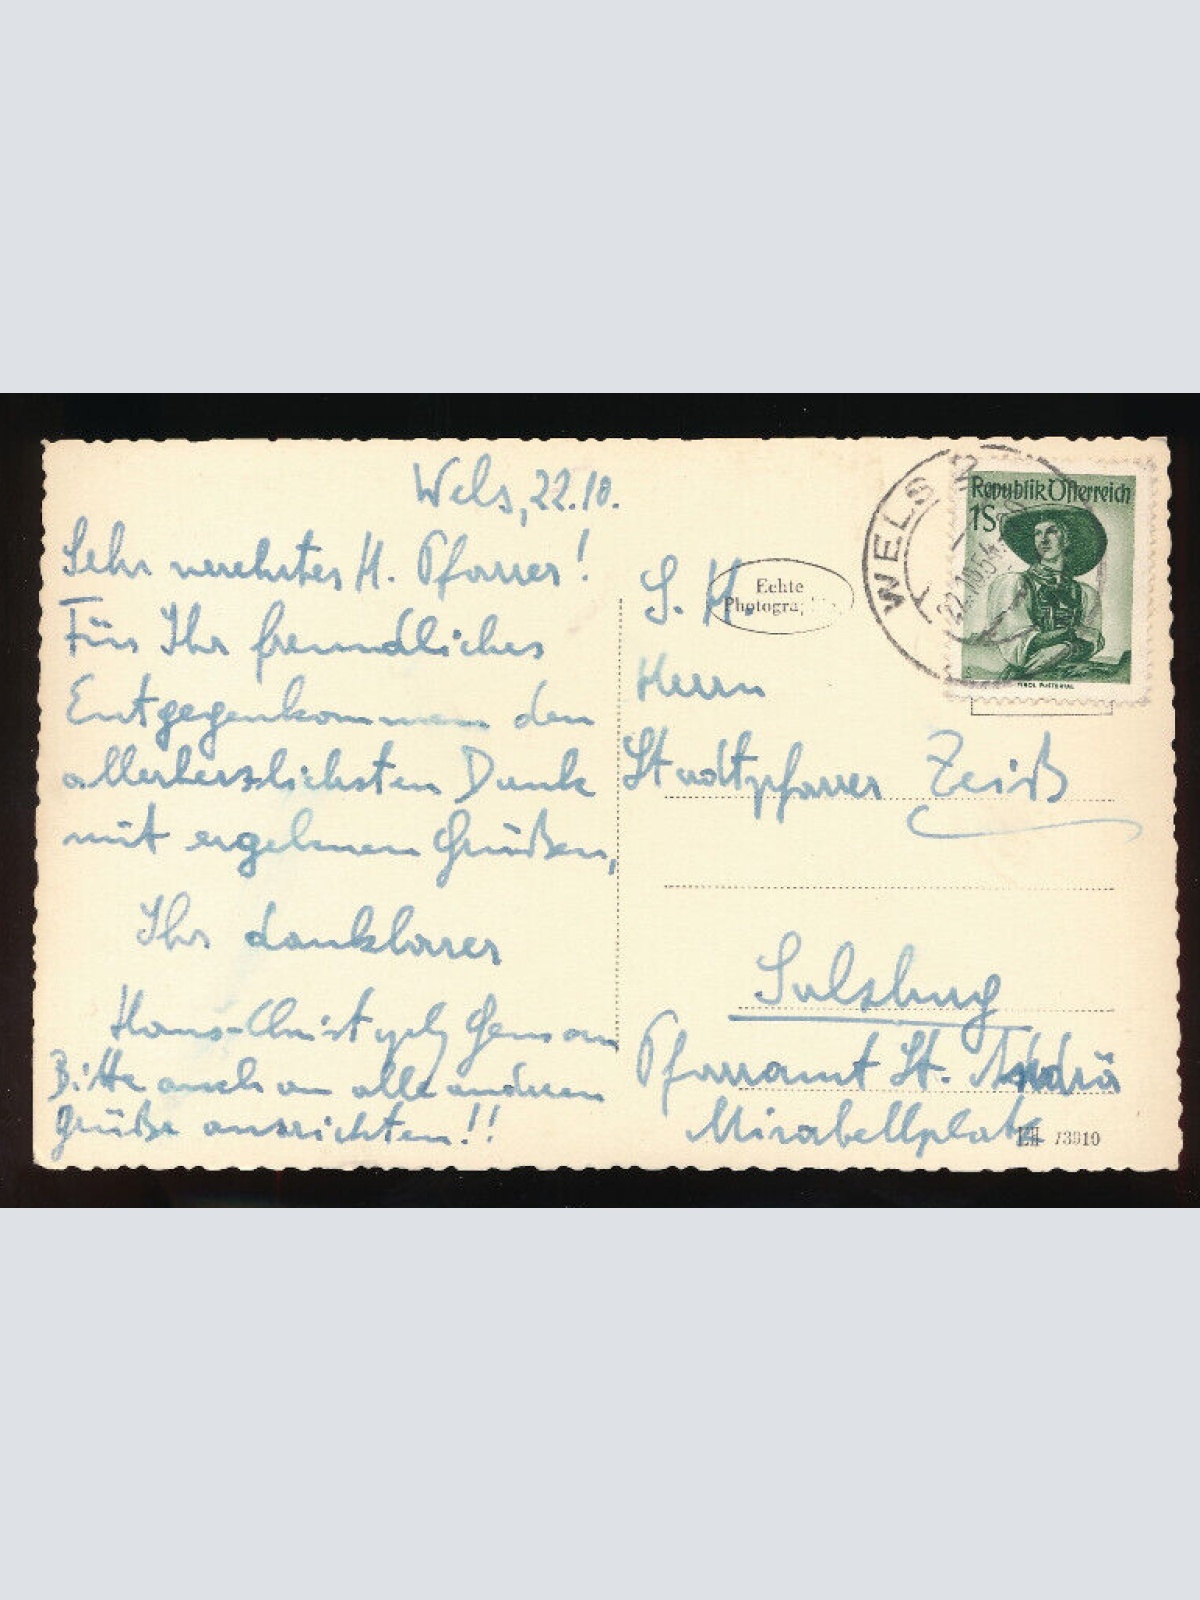 Wels, 22.10.
Sehr verehrter H. Pfarrer!
Für Ihr freundliches
Entgegenkommen den
allerherzlichsten Dank
mit ergebenen Grüßen,
Ihr dankbarer
Hans-Christoph
Bitte auch an alle anderen
Grüße ausrichten!!
Echte
Photogra
S. H.
Herrn
Stadtpfarrer Zeiß
Salzburg
Pfarramt St. Andrä
Mirabellplatz
73910
WELS
22.10.54
Republik Österreich
1S
TIROL PUSTERTAL